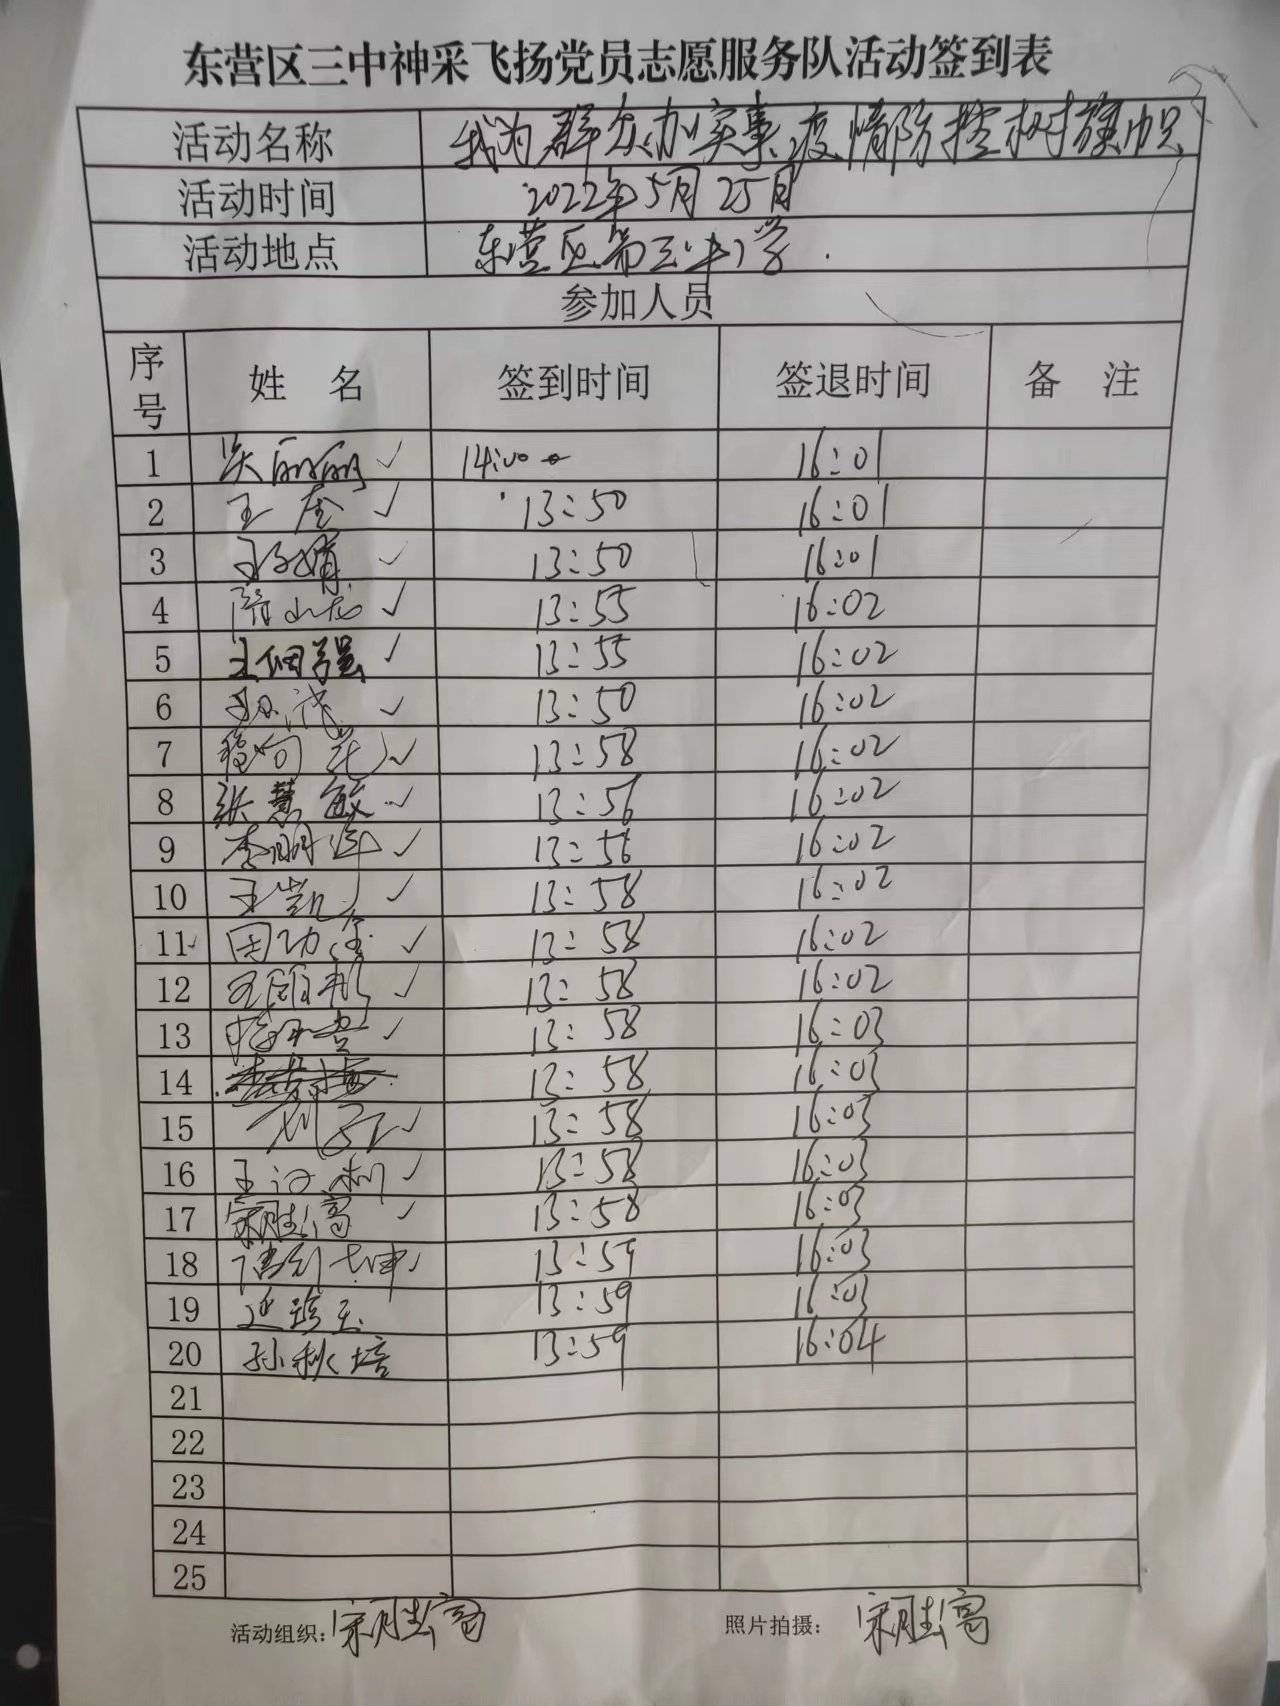 东营区三中神采飞扬党员志愿服务队活动签到表
活动名称 我为群众办实事疫情防控树旗帜
活动时间 2022年5月25日
活动地点 东营区第三中学.
参加人员
序号 姓 名 签到时间 签退时间 备 注
1 丽丽 ✓ 14:00 16:01
2 王 ✓ 13:50 16:01
3 ✓ 13:50 16:01
4 隋 ✓ 13:55 16:02
5 王佃强 ✓ 13:55 16:02
6 ✓ 13:50 16:02
7 程向 ✓ 13:58 16:02
8 张慧敏 ✓ 13:56 16:02
9 李明 ✓ 13:56 16:02
10 王凯 ✓ 13:58 16:02
11 田功 ✓ 13:58 16:02
12 王 ✓ 13:58 16:02
13 ✓ 13:58 16:03
14 13:58 16:03
15 刘 ✓ 13:58 16:03
16 王 ✓ 13:58 16:03
17 宋胜高 ✓ 13:58 16:03
18 坤 ✓ 13:59 16:03
19 延珍玉 13:59 16:03
20 孙秋培 13:59 16:04
21
22
23
24
25
活动组织: 宋胜高 照片拍摄: 宋胜高